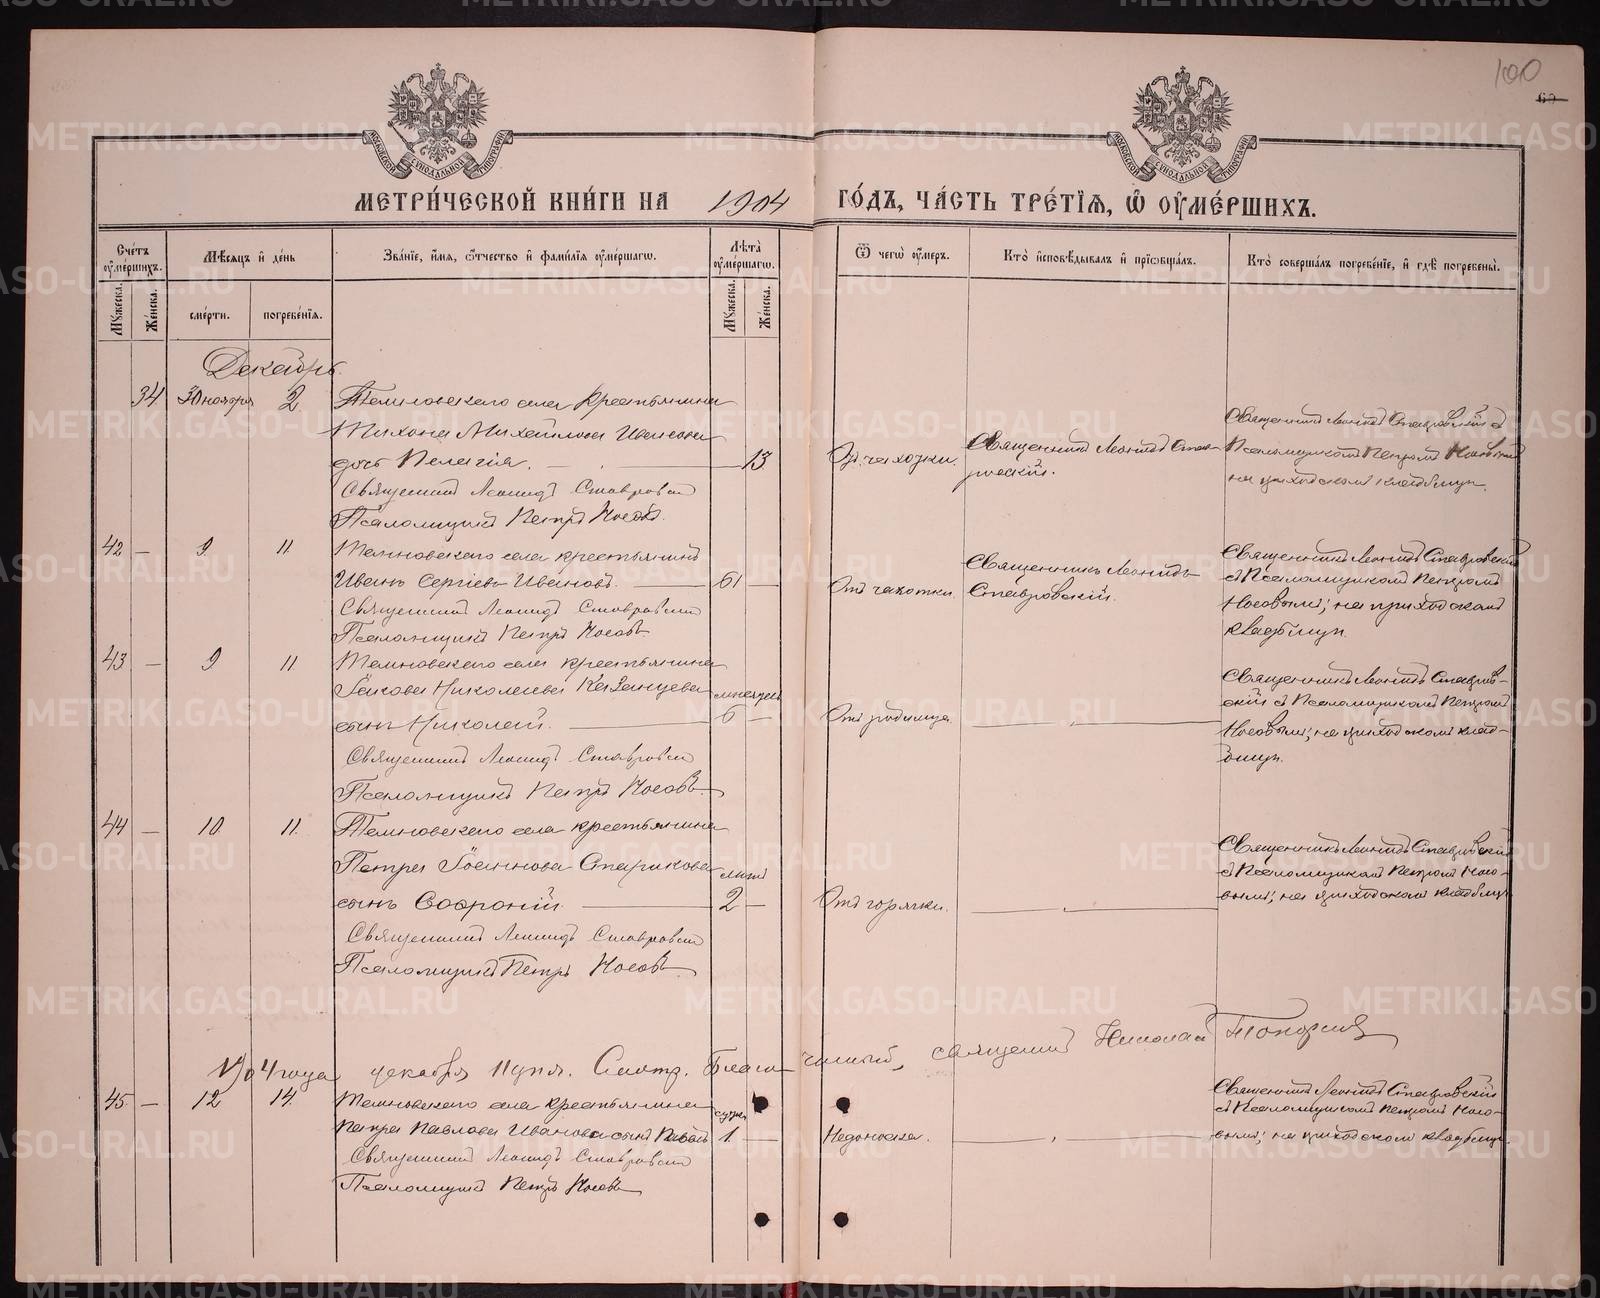 100
60
МОСКОВСКОЙ СѴНОДАЛЬНОЙ ТИПОГРАФІИ
МОСКОВСКОЙ СѴНОДАЛЬНОЙ ТИПОГРАФІИ
МЕТРИ́ЧЕСКОЙ КНИ́ГИ НА 1904 ГО́ДЪ, ЧА́СТЬ ТРЕ́ТІѦ, Ѡ҆ ОУ҆МЕ́РШИХЪ.
Сче́тъ оу҆ме́ршихъ.
Мꙋ́жеска.
Же́нска.
Мѣ́сѧцъ и҆ де́нь
сме́рти.
погребе́нїѧ.
Зва́нїе, и҆́мѧ, ѻ҆́тчество и҆ фами́лїѧ оу҆ме́ршагѡ.
Лѣ́та̀ оу҆ме́ршагѡ.
Мꙋ́жеска.
Же́нска.
Ѿ чегѡ̀ оу҆́меръ.
Кто̀ и҆сповѣ́дывалъ и҆ прїѡбща́лъ.
Кто̀ соверша́лъ погребе́нїе, и҆ гдѣ̀ погребены̀.
Декабрь.
34 30 ноября 2
Темновскаго села крестьянина
Тихона Михайлова Иванова
дочь Пелагія. 13
Священникъ Леонидъ Ставровскій
Псаломщикъ Петръ Носовъ.
Отъ чахотки.
Священникъ Леонидъ Став-
ровскій.
Священникъ Леонидъ Ставровскій съ
Псаломщикомъ Петромъ Носовымъ
на приходскомъ кладбищѣ.
42 — 9 11.
Темновскаго села крестьянинъ
Иванъ Сергіевъ Ивановъ. 61 —
Священникъ Леонидъ Ставровскій
Псаломщикъ Петръ Носовъ
Отъ чахотки.
Священникъ Леонидъ
Ставровскій.
Священникъ Леонидъ Ставровскій
съ Псаломщикомъ Петромъ
Носовымъ; на приходскомъ
кладбищѣ.
43 — 9 11
Темновскаго села крестьянина
Іакова Николаева Казанцева
сынъ Николай. мѣсяцевъ 6 —
Священникъ Леонидъ Ставровскій
Псаломщикъ Петръ Носовъ.
Отъ родимца.
Священникъ Леонидъ Ставров-
скій съ Псаломщикомъ Петромъ
Носовымъ; на приходскомъ клад-
бищѣ.
44 — 10. 11.
Темновскаго села крестьянина
Петра Іоаннова Старикова
сынъ Софроній. лѣтъ 2 —
Священникъ Леонидъ Ставровскій
Псаломщикъ Петръ Носовъ
Отъ горячки.
Священникъ Леонидъ Ставровскій
съ Псаломщикомъ Петромъ Носо-
вымъ; на приходскомъ кладбищѣ.
1904 года декабря 11 дня. Смотр. Благочинный, священникъ Николай
45. — 12 14.
Темновскаго села крестьянина
Петра Павлова Иванова сынъ сутк. 1. —
Священникъ Леонидъ Ставровскій
Псаломщикъ Петръ Носовъ
Недоноска.
Священникъ Леонидъ Ставровскій
съ Псаломщикомъ Петромъ Носо-
вымъ; на приходскомъ кладбищѣ.
METRIKI.GASO-URAL.RU